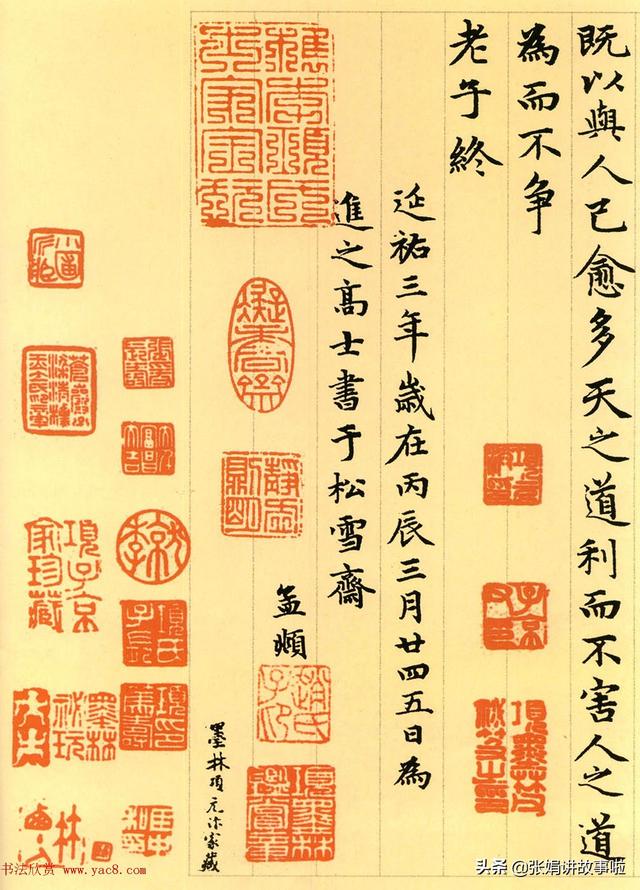 既以與人已愈多天之道利而不害人之道
為而不争
老子終
延祐三年歲在丙辰三月廿四五日為
進之高士書于松雪齋
孟頫
墨林項元汴家藏
項墨林父秘笈之印
趙氏子昂
項墨林鑑賞章
項子京家珍藏
墨林秘玩
书法欣赏 www.yac8.com
头条 @张娟讲故事啦